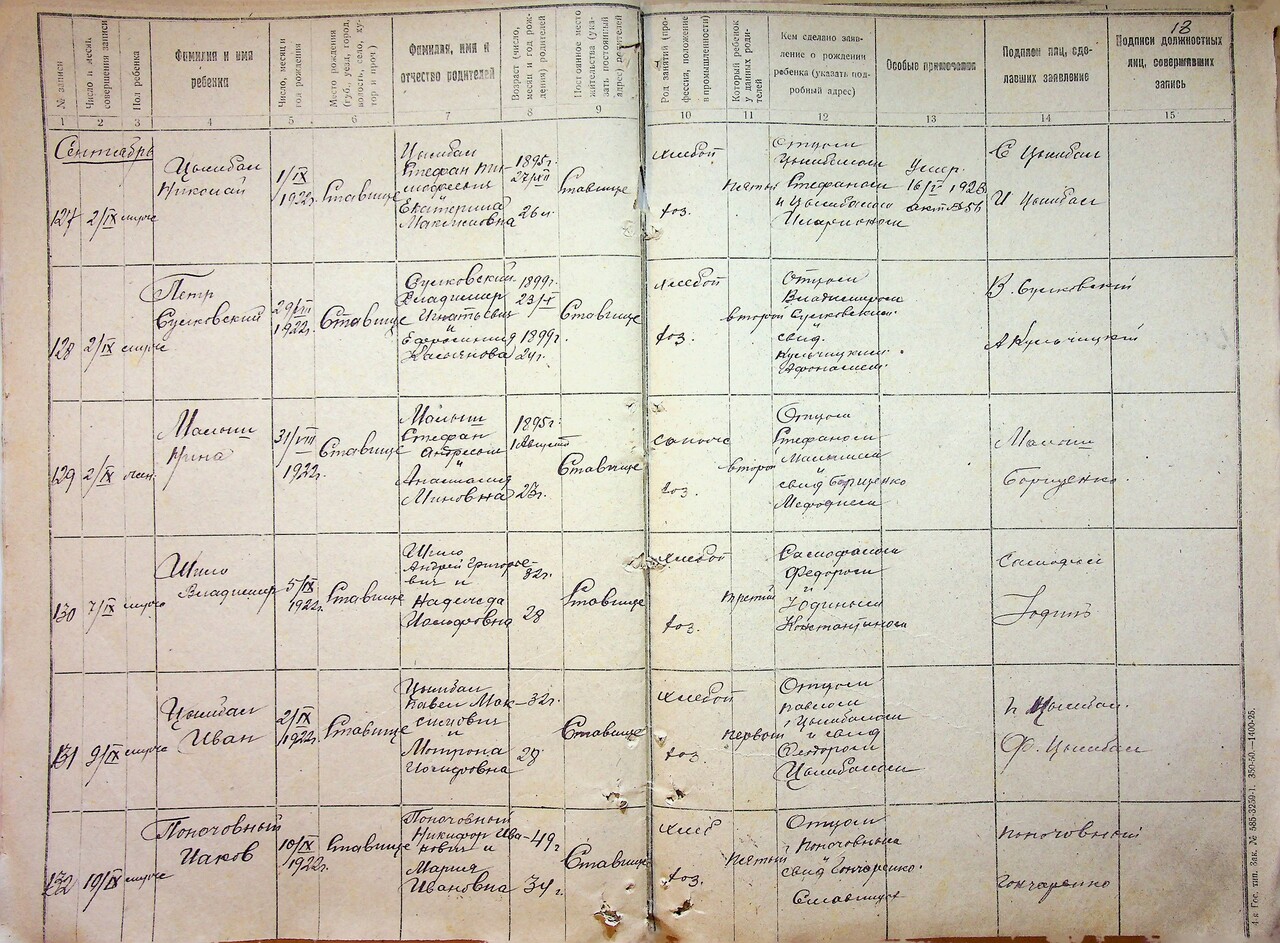 18
№ записи
Число и месяц совершения записи
Пол ребенка
Фамилия и имя
ребенка
Число, месяц и
год рождения
Место рождения
(губ., уезд, город,
волость, село, ху-
тор и проч.)
Фамилия, имя и
отчество родителей
Возраст (число,
месяц и год рож-
дения) родителей
Постоянное место
жительства (ука-
зать постоянный
адрес) родителей
Род занятий (про-
фессия, положение
в промышленности)
Который ребенок
у данных роди-
телей
Кем сделано заяв-
ление о рождения
ребенка (указать под-
робный адрес)
Особые примечания
Подписи лиц, сде-
лавших заявление
Подписи должностных
лиц, совершавших
запись
1 2 3 4 5 6 7 8 9 10 11 12 13 14 15
Сентябрь
127
2/IX
Цымбал
Николай
1/IX
1922г.
Ставище
Цымбал
Стефан Ти-
мофеевич
и
Екатерина
Максимовна
1895г.
27/XII
26 л.
Ставище
хлебоп
Пятый
Отцом
Цымбалом
Стефаном
и Цымбалом
Иларионом
Умер.
16/I 1923
С Цымбал
И Цымбал
128
2/IX
Петр
Сулковский
29/VIII
1922г.
Ставище
Сулковский
Владимир
Игнатьевич
и
Ефросиния
1899г.
23/X
1899
24г.
Ставище
хлебоп
второй
Отцом
Владимиром
Сулковский
свид.
Кульчицким
Афонасием
В. Сулковский
А Кульчицкий
129
2/IX
Малыш
Нина
31/VIII
1922г.
Ставище
Малыш
Стефан
Андреевич
и
Анастасия
Миновна
1895г.
1 Августа
23г.
Ставище
второй
Отцом
Стефаном
Малышем
и
свид Борищенко
Мефодием
Малыш
Борищенко
130
7/IX
Шило
Владимир
5/IX
1922г.
Ставище
Шило
Андрей Григорье-
вич и
Надежда
Иосифовна
32г.
28
Ставище
хлебоп
третий
Федором
и
Константином
131
9/IX
Цымбал
Иван
2/IX
1922г.
Ставище
Цымбал
Павел Мак-
симович
и
Мотрона
Иосифовна
32г.
28
Ставище
хлебоп
первый
Отцом
Павлом
Цымбалом
и свид
Федором
Цымбалом
П Цымбал.
Ф. Цымбал
132
19/IX
Поночовный
Иаков
10/IX
1922г.
Ставище
Поночовный
Никифор Ива-
нович и
Мария
Ивановна
49г
34 г.
Ставище
хлеб
Пятый
Отцом
Поночовным
свид Гончаренко.
Поночовный
Гончаренко
4-я Гос. тип. Зак. № 585-3259-1. 350-50.—1400-25.